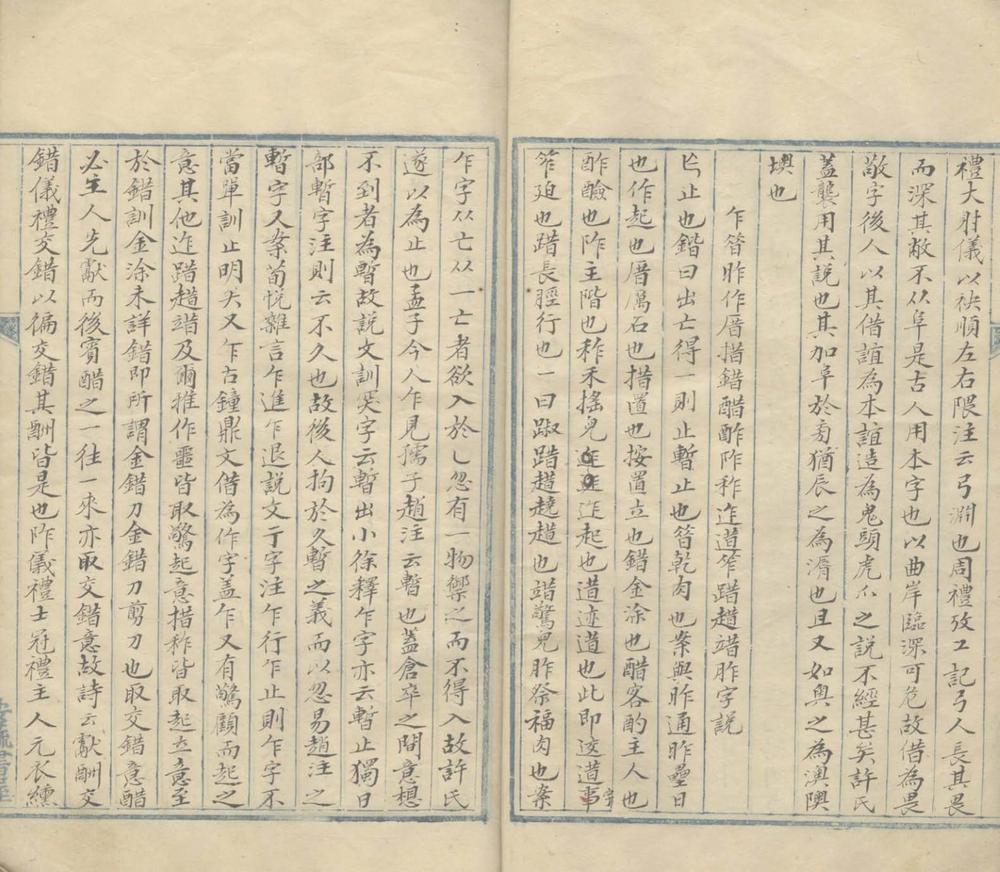 禮大射儀以袂順左右隈注云弓淵也周禮攷工記弓人長其畏
而深其敝不从阜是古人用本字也以曲岸臨深可危故借為畏
敬字後人以其借誼為本誼造為鬼頭虎爪之說不經甚矣許氏
蓋襲用其說也其加阜於旁猶辰之為漘也且又如奥之為澳隩
墺也
乍㫺昨作厝措錯醋酢阼秨迮逪笮踖趞竫胙字說
亾止也鍇曰出亡得一則止暫止也㫺乾肉也案與昨通昨壘日
也作起也厝厲石也措置也按置立也錯金涂也醋客酌主人也
酢醶也阼主階也秨禾搖皃迮迮起也逪迹逪也此即迻逪字
笮廹也踖長脛行也一曰踧踖趞趬趞也竫驚皃胙祭福肉也案
乍字从亡从一亡者欲入於乚忽有一物禦之而不得入故許氏
遂以為止也孟子今人乍見孺子趙注云暫也蓋倉卒之間意想
不到者為暫故說文訓突字云暫出小徐釋乍字亦云暫止獨日
部暫字注則云不久也故後人拘於久暫之義而以忽易趙注之
暫字又案荀悅雜言乍進乍退說文亍字注乍行乍止則乍字不
當單訓止明矣又乍古鐘鼎文借為作字蓋乍又有驚顧而起之
意其他迮踖趞竫及爾雅作噩皆取驚起意措秨皆取起立意至
於錯訓金涂未詳錯即所謂金錯刀金錯刀剪刀也取交錯意醋
必主人先獻而後賓醋之一往一來亦取交錯意故詩云獻酬交
錯儀禮交錯以徧交錯其酬皆是也阼儀禮士冠禮主人元衣纁